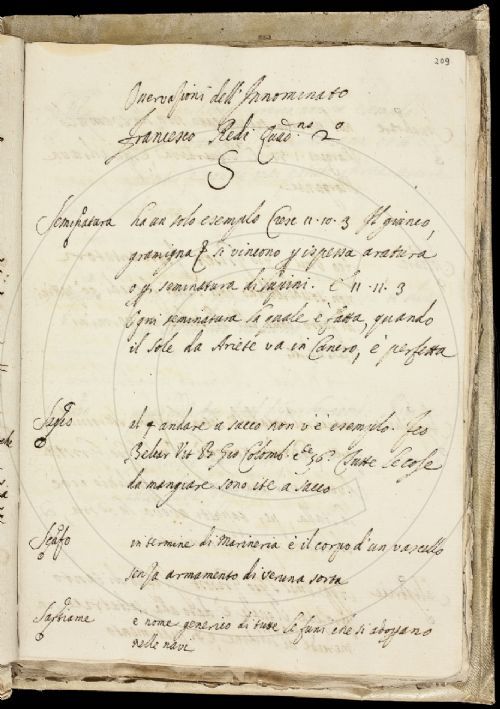 209
Osservazioni dell'Innominato
Francesco Redi Quad.no 2o
S
Seminatura ha un solo esempio Cresc 11. 10. 3 Il giunco,
gramigna si vincono p ispessa aratura
o p. seminatura di lupini. e 11. 11. 3
Ogni seminatura la quale è fatta, quando
il sole da Ariete va in Cancro, è perfetta
al § andare a sacco non v'è esempio. Feo
Belcar Vit Bo Gio Colomb. c. 36. Tutte le cose
da mangiare sono ite a sacco
Scafo in termine di Marineria è il corpo d'un vascello
senza armamento di veruna sorta
Sartiame è nome generico di tutte le funi che si adoprano
nelle navi